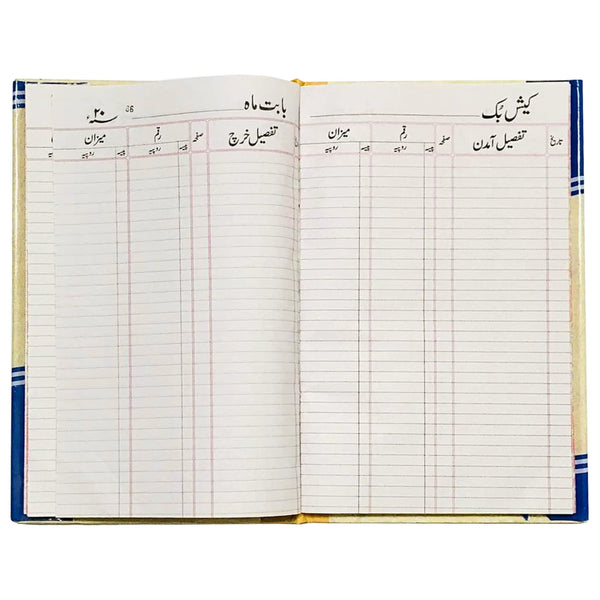 کیش بک
تاریخ تفصیل آمدن صفحہ رقم میزان
پیسہ روپیہ پیسہ روپیہ
بابت ماہ 86 ۲۰ سنہ ء
تفصیل خرچ صفحہ رقم میزان
پیسہ روپیہ پیسہ روپیہ